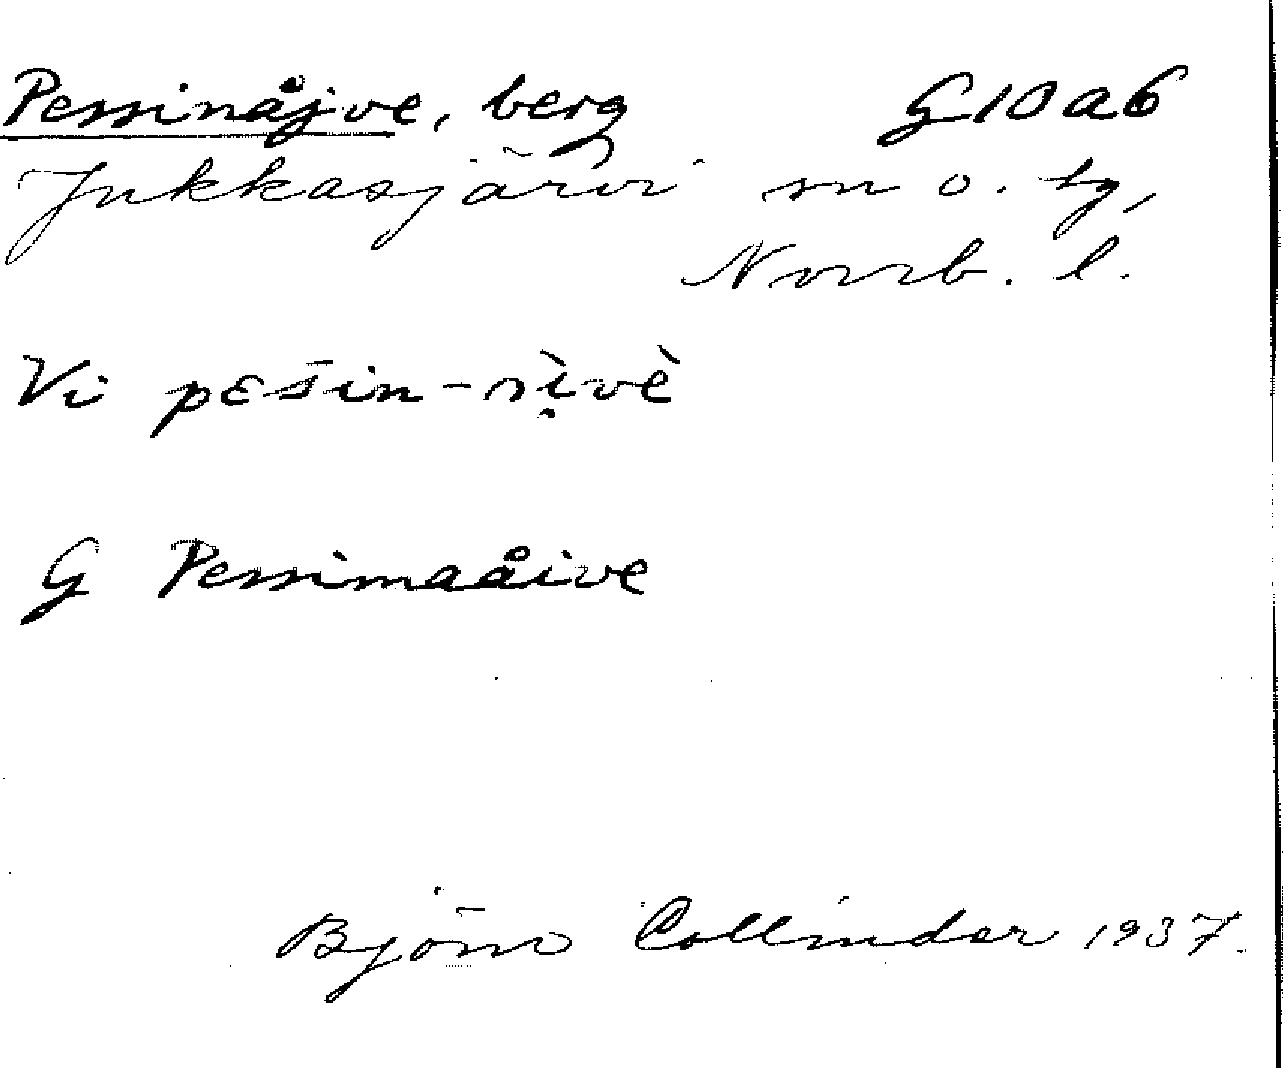 Pessinåjve, berg G10a6
Jukkasjärvi sn o. tg,
Norrb. l.
Vi
G Pessimaåive
Björn Collinder 1937.